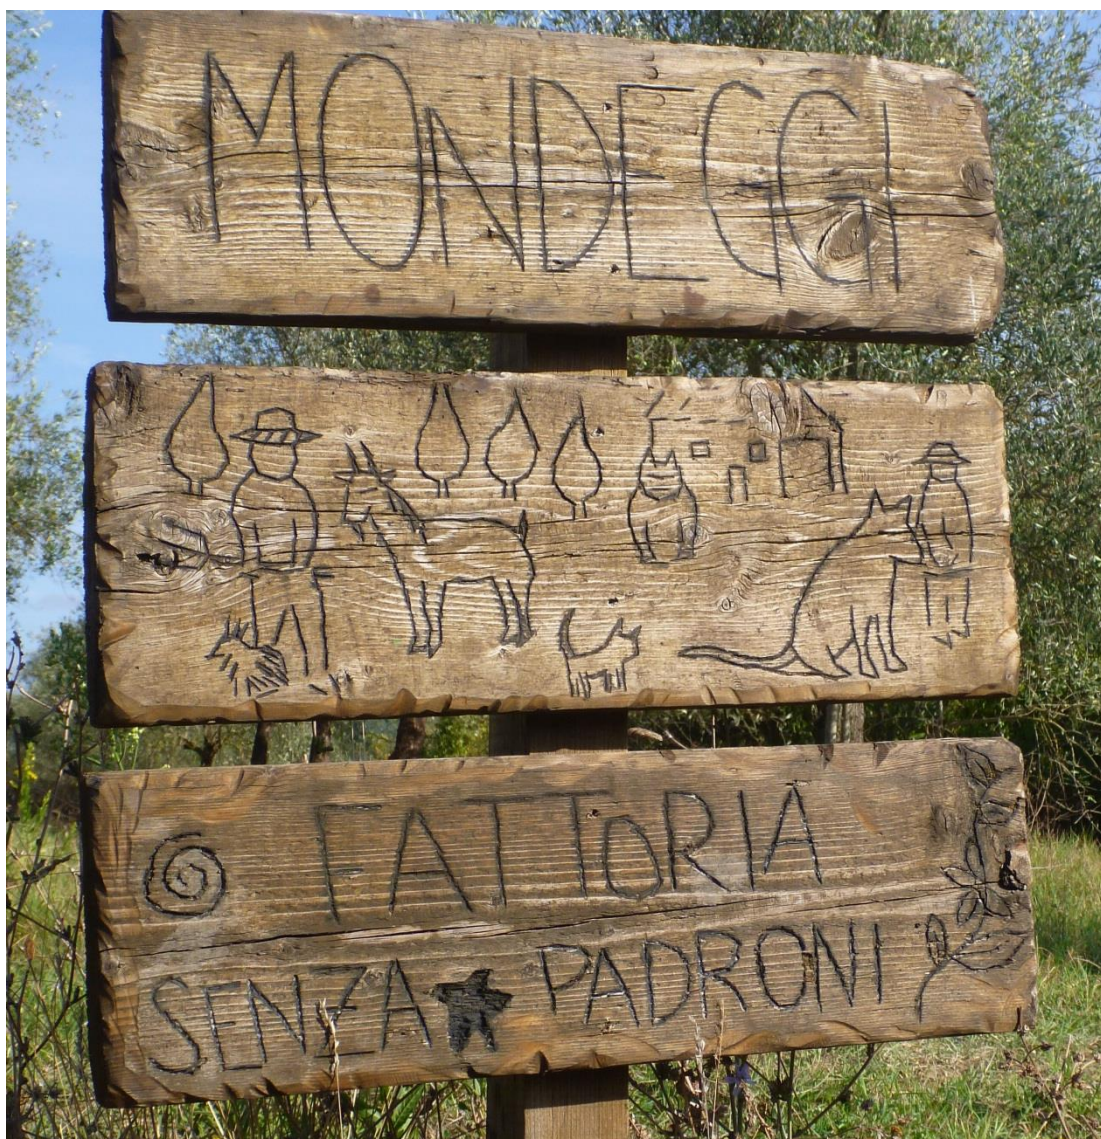 MONDEGGI
FATTORIA
SENZA PADRONI